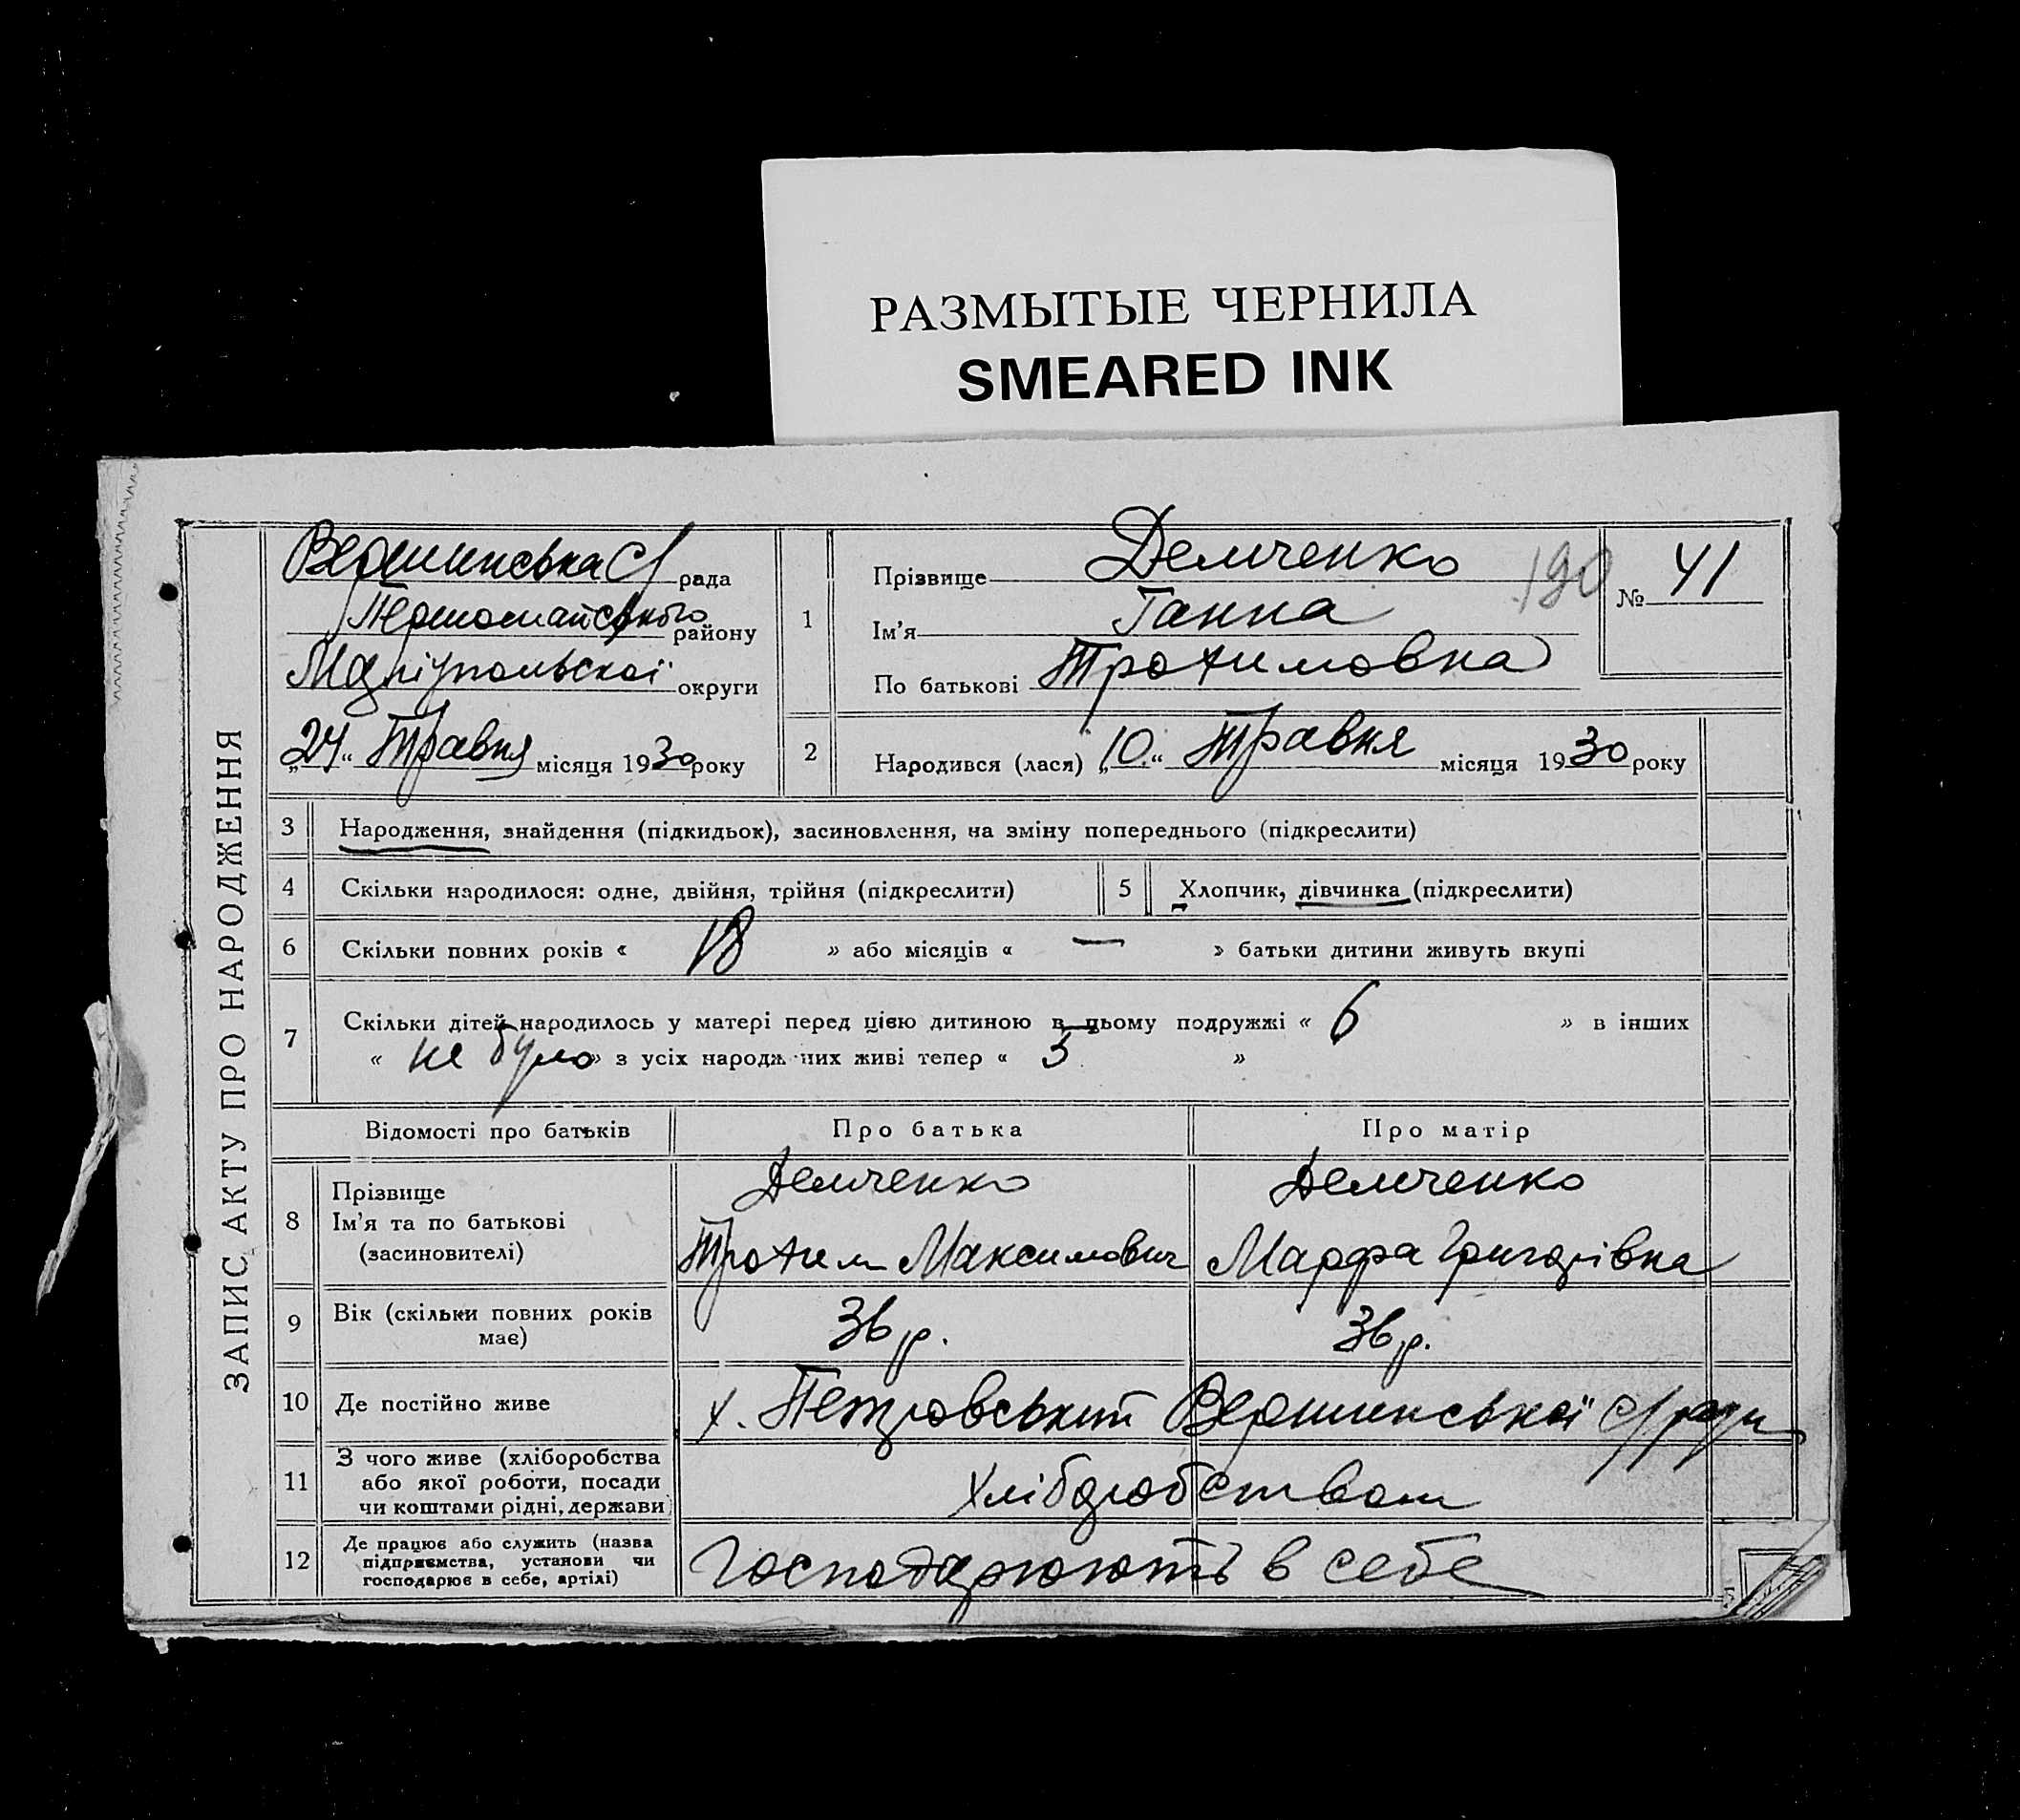 РАЗМЫТЫЕ ЧЕРНИЛА
SMEARED INK
ЗАПИС АКТУ ПРО НАРОДЖЕННЯ
Вершинська С/ рада
Першомайського району
Маріупольської округи
„24“ Травня місяця 1930 року
1 Прізвище Демченко
Ім'я Ганна
По батькові Трохимовна
190
№ 41
2 Народився (лася) „10“ Травня місяця 1930 року
3 Народження, знайдення (підкидьок), засиновлення, на зміну попереднього (підкреслити)
4 Скільки народилося: одне, двійня, трійня (підкреслити) 5 Хлопчик, дівчинка (підкреслити)
6 Скільки повних років « 18 » або місяців « — » батьки дитини живуть вкупі
7 Скільки дітей народилось у матері перед цією дитиною в цьому подружжі « 6 » в інших
« не було » з усіх народж них живі тепер « 5 »
Відомості про батьків Про батька Про матір
8 Прізвище Демченко Демченко
Ім'я та по батькові Трохим Максимович Марфа Григорівна
(засиновителі)
9 Вік (скільки повних років має) 36 р. 36 р.
10 Де постійно живе х. Петровський Вершинської с/ ради
11 З чого живе (хліборобства
або якої роботи, посади
чи коштами рідні, держави) Хліборобством
12 Де працює або служить (назва
підприємства, установи чи
господарює в себе, артілі) Господарюють в себе